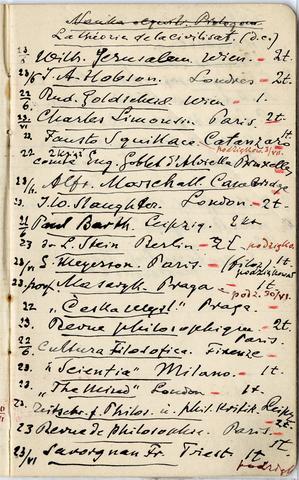 Nauka
La théorie de la civilisat. (d.c.)
23/5 Wilh. Jerusalem Wien. – 2t.
23/5 J. A. Hobson. Londres – 2t.
22/6 Rud. Goldscheid Wien – 1.
23/VI Charles Limousin Paris 2t.
22 Fausto Squillace. Catanzaro 1t.
podziękow. 3/VII.
22 comte Eug. Goblet d'Alviella Bruxelles
23/6 Alfr. Marschall Cambridge
23/ J. W. Slaughter. London – 2t.
21/6 Paul Barth. Leipzig. 2t
23 Dr L. Stein Berlin – 2t. podzięko
23/VI S. Meyerson. Paris. – (filoz) 1t.
podziękował
23 prof Masaryk Praga – 1t.
podz. 30/VI.
22 „Česka mysl" Praga. –
23 Revue philosophique – 2t.
Paris.
22/6 Cultura Filosofica. Firenze –
23 „Scientia" Milano. – 1t.
22 „The Mind" London – 1t.
22 Zeitschr. f. Philos. u. phil. Kritik Leipz
2t.
23 Revue de Philosophie. Paris. –
1t.
23/VI Savorgnan Fr. Triest 1t
podzięk